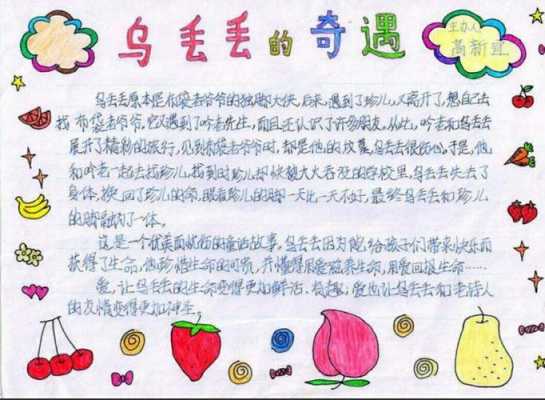 乌丢丢的奇遇
主办人
高新宜
乌丢丢原本是布袋老爷爷的独脚大侠,后来,遇到了珍儿,又离开了,想自己去
找布袋老爷爷,它又遇到了吟老先生,而且还认识了许多朋友,从此,吟老和乌丢丢
展开了精彩的旅行,见到布袋老爷爷时,却是他的坟墓,乌丢丢很伤心,于是,他
和吟老一起去找珍儿,找到时珍儿却
的学校里,乌丢丢失去了
身体,换回了珍儿的命,眼看珍儿的脚一大一小不好,最终乌丢丢和珍儿
的脚融为了一体。
这是一个优美而忧伤的童话故事,乌丢丢因为能给孩子们带来快乐而
获得了生命,他珍惜生命的可贵,并懂得用爱滋养生命,用爱回报生命……
爱,让乌丢丢的生命变得更加鲜活、有趣;爱也让乌丢丢和老诗人
的友情变得更加神圣。